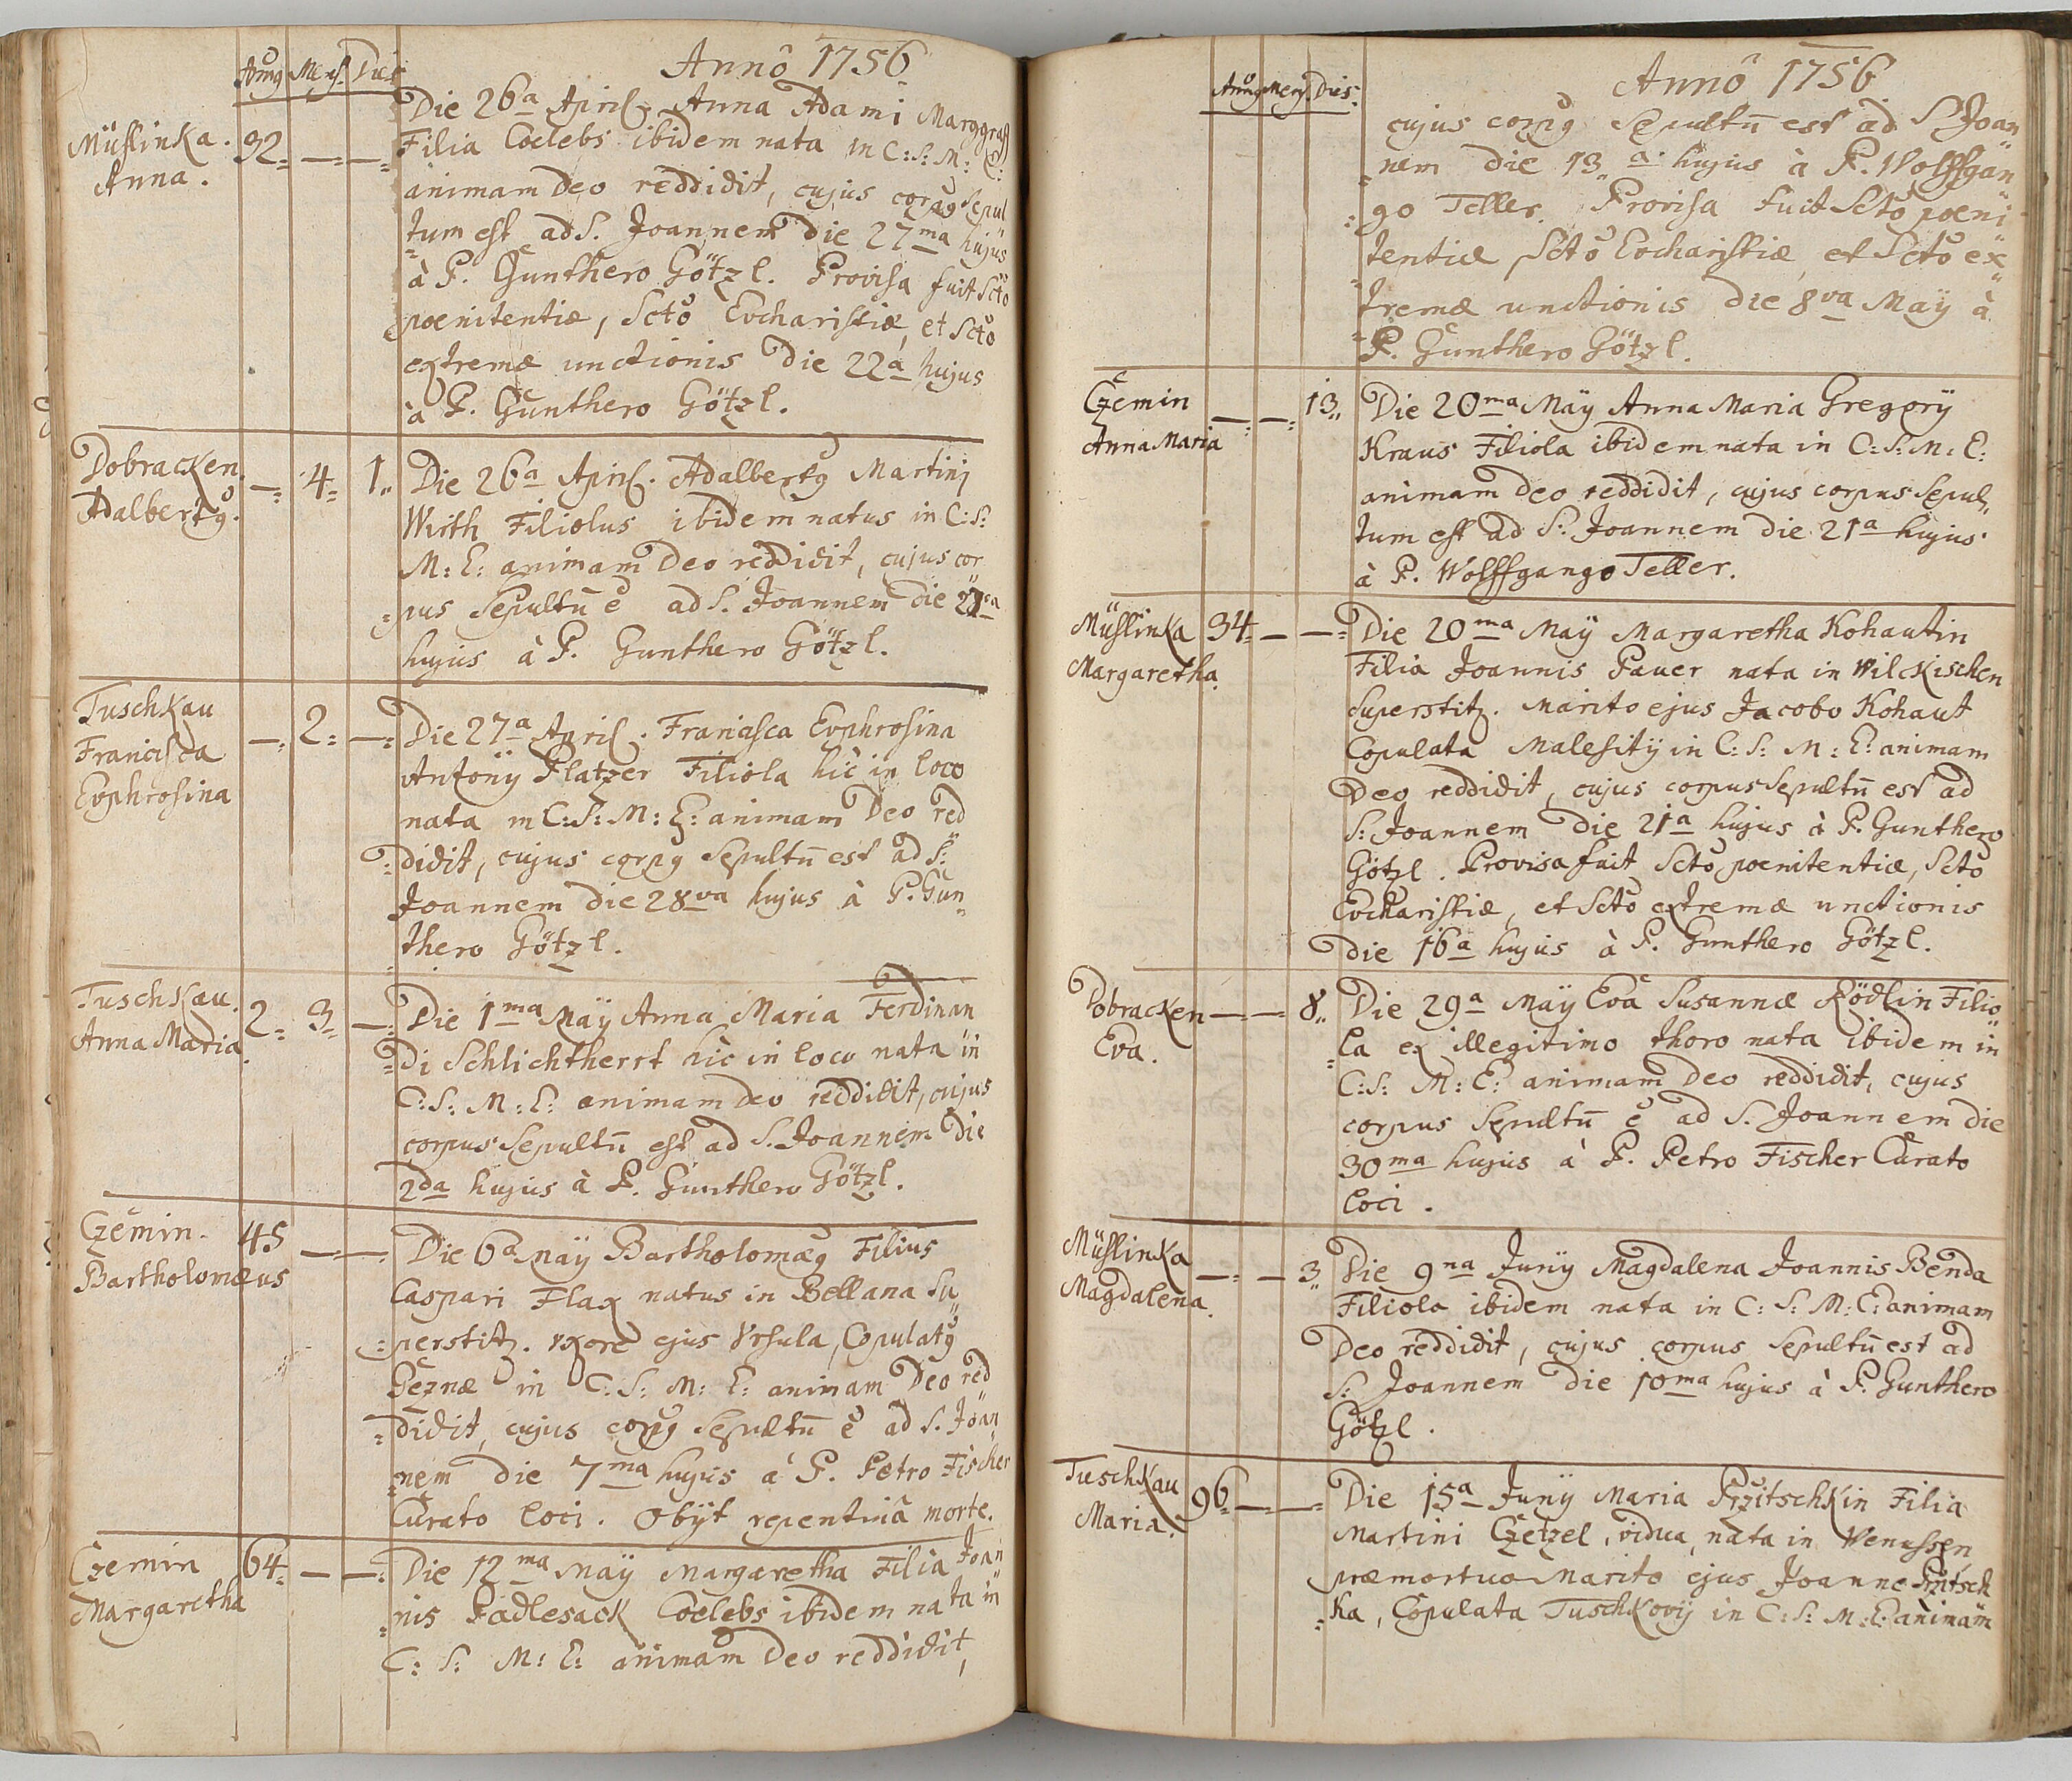 Annô 1756
Anng Mens. Dies
Müslinka. 32
Anna.
Die 26a April. Anna Adami Marggraf
Filia Coelebs ibidem nata in C: S: M: E:
animam Deo reddidit, cujus corpg sepul
tum est ad S. Joannem die 27ma hujus
à P. Gunthero Götzl. Provisa fuit Scto
poenitentiæ, Scto Eucharistiæ, et Scto
extremæ unctionis die 22a hujus
à P. Gunthero Götzl.
Dobracken. 4 1
Adalbertg.
Die 26a April. Adalbertg Martinj
Wirth Filiolus ibidem natus in C: S:
M: E: animam Deo reddidit, cujus cor
pus Sepultū ē ad S. Joannem die
hujus à P. Gunthero Götzl.
Tuschkau 2
Francisca
Euphrosina
Die 27a April. Francisca Euphrosina
Antonÿ Platzer Filiola hìc in loco
nata in C: S: M: E: animam Deo red
didit, cujus corpg Sepultū est ad S:
Joannem die 28va hujus à P. Gun
thero Götzl.
Tuschkau. 2 3
Anna Maria.
Die 1ma Maÿ Anna Maria Ferdinan
di Schlichtherrt hìc in loco nata in
C: S: M: E: animam Deo reddidit, cujus
corpus Sepultū est ad S. Joannem die
2da hujus à P. Gunthero Götzl.
Czemin. 45
Bartholomæus
Die 6a Maÿ Bartholomæg Filius
Caspari Flax natus in Bellana su
perstit. uxore ejus Vrsula, Copulatg
in C: S: M: E: animam Deo red
didit, cujus corpg Sepultū ē ad S. Joan
nem die 7ma hujus à P. Petro Fischer
Curato loci. Obÿt repentinâ morte.
Czemin 64
Margaretha
Die 12ma Maÿ Margaretha Filia Joan
nis Padlesack Coelebs ibidem nata in
C: S: M: E: animam Deo reddidit,
Annô 1756
Anng Mens. Dies.
cujus corpg Sepultū est ad S Joan
nem die 13a hujus à P. Wolffgan
go Teller. Provisa fuit Scto poeni
tentiæ, Scto Eucharistiæ, et Scto ex
tremæ unctionis die 8va Maÿ à
P. Gunthero Götzl.
Czemin 13
Anna Maria
Die 20ma Maÿ Anna Maria Gregorÿ
Kraus Filiola ibidem nata in C: S: M: E:
animam Deo reddidit, cujus corpus Sepul
tum est ad S: Joannem die 21a hujus
à P. Wolffgango Teller.
Müslinka 34
Margaretha.
Die 20ma Maÿ Margaretha Kohautin
Filia Joannis Pauer nata in Wilckischen
superstit. Marito ejus Jacobo Kohaut
Copulata Malesitÿ in C: S: M: E: animam
Deo reddidit, cujus corpus Sepultū est ad
S: Joannem die 21a hujus à P. Gunthero
Götzl. Provisa fuit Scto poenitentiæ, Scto
Eucharistiæ, et Scto extremæ unctionis
die 16a hujus à P. Gunthero Götzl.
Dobracken 8
Eva.
Die 29a Maÿ Eva Susannæ Rödlin Filio
la ex illegitimo thoro nata ibidem in
C: S: M: E: animam Deo reddidit, cujus
corpus Sepultū ē ad S. Joannem die
30ma hujus à P. Petro Fischer Curato
loci.
Müslinka 3
Magdalena.
Die 9na Junÿ Magdalena Joannis Benda
Filiola ibidem nata in C: S: M: E: animam
Deo reddidit, cujus corpus Sepultū est ad
S: Joannem die 10ma hujus à P. Gunthero
Götzl.
Tuschkau 96
Maria.
Die 15a Junÿ Maria Przitschkin Filia
Martini Czetzel, vidua, nata in Wenussen
præmortuo Marito ejus Joanne Pritsch
ka, Copulata Tuschkovÿ in C: S: M: E: animam